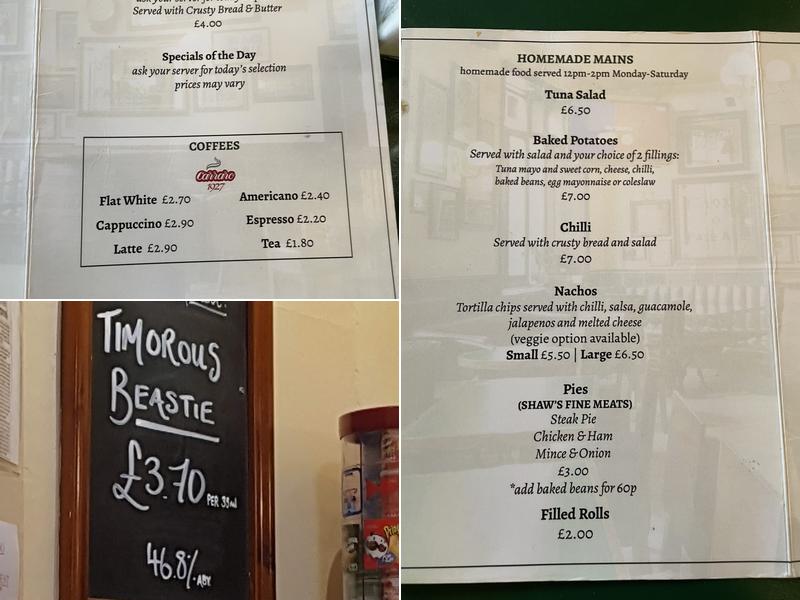 Served with Crusty Bread & Butter
£4.00
Specials of the Day
ask your server for today's selection
prices may vary
COFFEES
Carraro
1927
Flat White £2.70
Americano £2.40
Cappuccino £2.90
Espresso £2.20
Latte £2.90
Tea £1.80
TIMOROUS
BEASTIE
£3.70
PER 35ml
46.8%
ABV
HOMEMADE MAINS
homemade food served 12pm-2pm Monday-Saturday
Tuna Salad
£6.50
Baked Potatoes
Served with salad and your choice of 2 fillings:
Tuna mayo and sweet corn, cheese, chilli,
baked beans, egg mayonnaise or coleslaw
£7.00
Chilli
Served with crusty bread and salad
£7.00
Nachos
Tortilla chips served with chilli, salsa, guacamole,
jalapenos and melted cheese
(veggie option available)
Small £5.50 | Large £6.50
Pies
(SHAW'S FINE MEATS)
Steak Pie
Chicken & Ham
Mince & Onion
£3.00
*add baked beans for 60p
Filled Rolls
£2.00